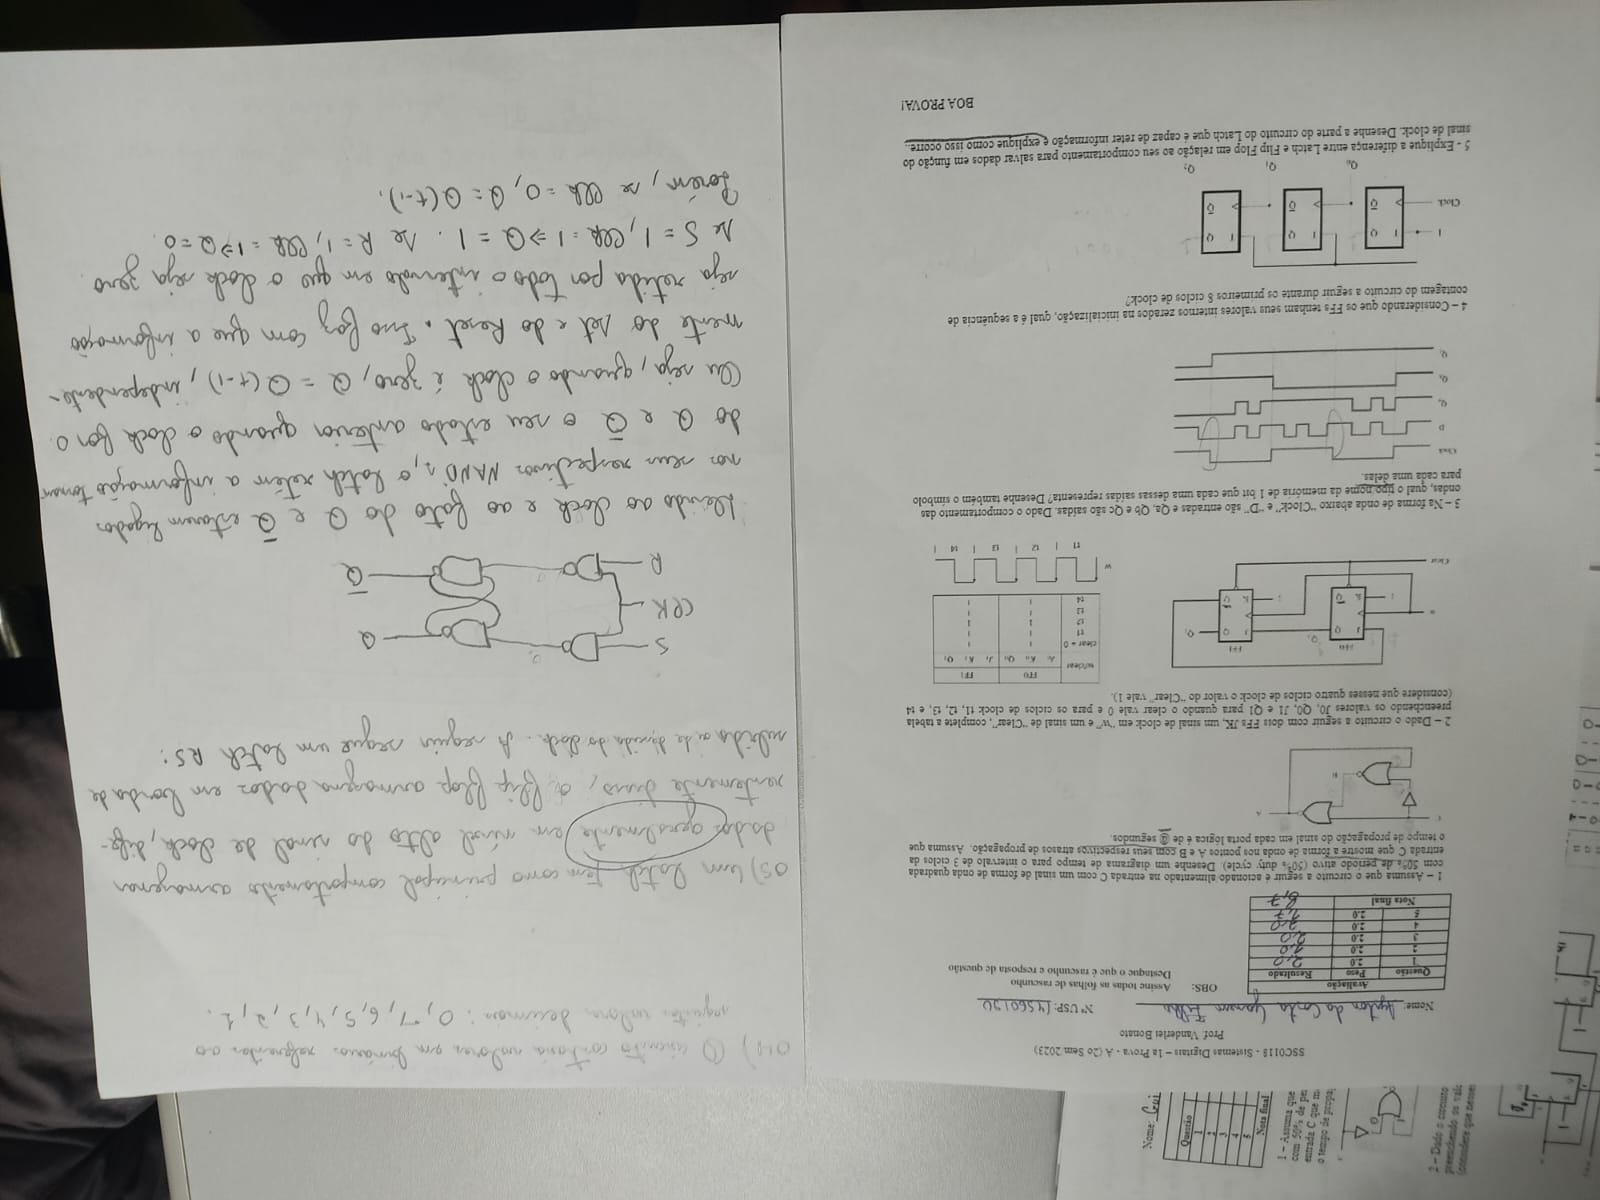 SSC0118 - Sistemas Digitais – 1a Prova - A (2o Sem 2023)
Prof. Vanderlei Bonato
Nome: Ayrton da Costa Ganem Filho Nº USP: 14560190
Avaliação
Questão Peso Resultado
1 2.0 2,0
2 2.0 1,0
3 2.0 2,0
4 2.0 2,0
5 2.0 1,7
Nota final 8,7
OBS: Assine todas as folhas de rascunho
Destaque o que é rascunho e resposta de questão
1 – Assuma que o circuito a seguir é acionado alimentado na entrada C com um sinal de forma de onda quadrada
com 50% de período ativo (50% duty cycle). Desenhe um diagrama de tempo para o intervalo de 3 ciclos da
entrada C que mostre a forma de onda nos pontos A e B com seus respectivos atrasos de propagação. Assuma que
o tempo de propagação do sinal em cada porta lógica é de segundos.
C
A
B
2 – Dado o circuito a seguir com dois FFs JK, um sinal de clock em "w" e um sinal de "Clear", complete a tabela
preenchendo os valores J0, Q0, J1 e Q1 para quando o clear vale 0 e para os ciclos de clock t1, t2, t3, e t4
(considere que nesses quatro ciclos de clock o valor do "Clear" vale 1).
FF0 FF1
w
Clear
J Q
K Q
J Q
K Q
Q₀
Q₁
w/clear FF0 FF1
J₀ K₀ Q₀ J₁ K₁ Q₁
clear = 0 1 1
t1 1 1
t2 1 1
t3 1 1
t4 1 1
w
t1 t2 t3 t4
3 – Na forma de onda abaixo "Clock" e "D" são entradas e Qa, Qb e Qc são saídas. Dado o comportamento das
ondas, qual o tipo/nome da memória de 1 bit que cada uma dessas saídas representa? Desenhe também o símbolo
para cada uma delas.
Clock
D
Qa
Qb
Qc
4 – Considerando que os FFs tenham seus valores internos zerados na inicialização, qual é a sequência de
contagem do circuito a seguir durante os primeiros 8 ciclos de clock?
1
Clock
T Q
Q
T Q
Q
T Q
Q
Q₀ Q₁ Q₂
5 - Explique a diferença entre Latch e Flip Flop em relação ao seu comportamento para salvar dados em função do
sinal de clock. Desenhe a parte do circuito do Latch que é capaz de reter informação e explique como isso ocorre.
BOA PROVA!
04) O circuito contaria valores em binário referentes ao
seguintes valores decimais: 0, 7, 6, 5, 4, 3, 2, 1.
05) Um latch tem como principal comportamento armazenar
dados geralmente em nível alto do sinal de clock, dife-
rentemente disso, o flip flop armazena dados em borda de
subida ou de descida do clock. A seguir segue um latch RS:
S
CLK
R
Q
Q̅
Devido ao clock e ao fato do Q e Q̅ estarem ligados
nos seus respectivos NAND's, o latch retém a informação tornan-
do Q e Q̅ o seu estado anterior quando o clock for 0.
Ou seja, quando o clock é zero, Q = Q(t-1), independente-
mente do Set e do Reset. Isso faz com que a informação
seja retida por todo o intervalo em que o clock seja zero.
Se S = 1, CLK = 1 ⇒ Q = 1. Se R = 1, CLK = 1 ⇒ Q = 0.
Porém, se CLK = 0, Q = Q(t-1).
Nome: Gui
Questão
1
2
3
4
5
Nota final
1 – Assuma que
com 50% de pe
entrada C que m
o tempo de propa
2 – Dado o circuito
preenchendo os valo
(considere que nesse